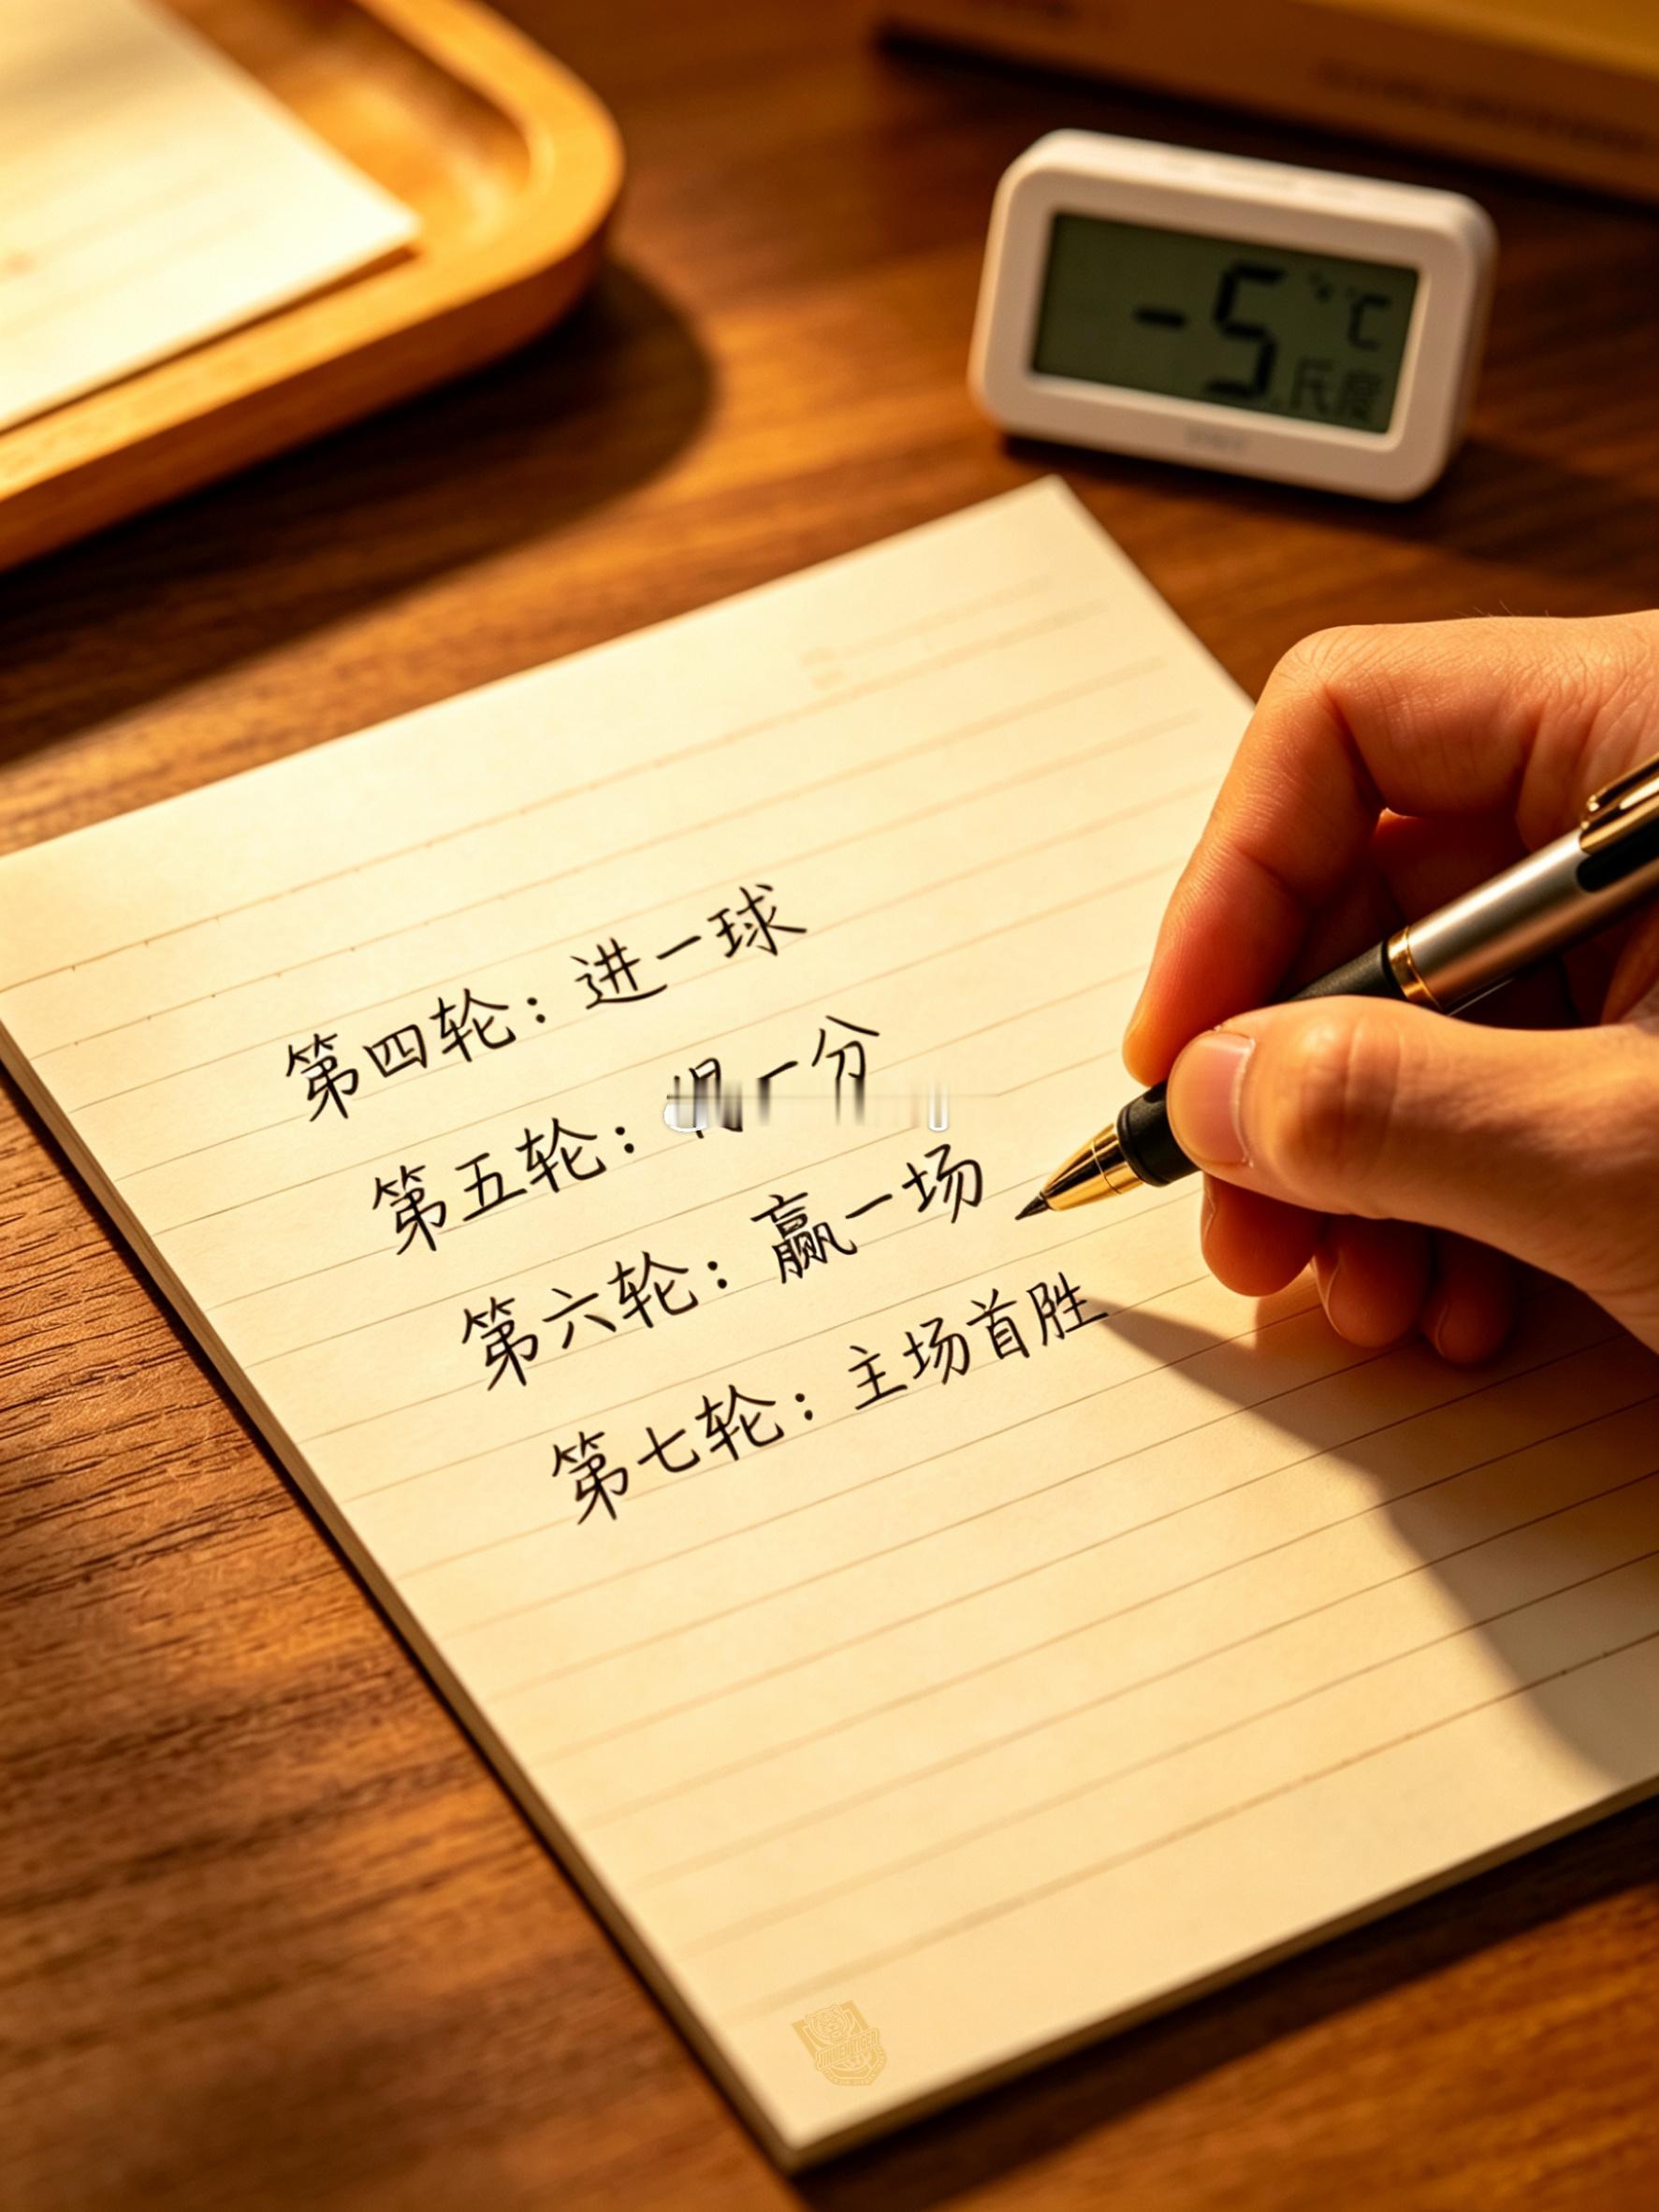 -5 °C
氏度
第四轮：进一球
第五轮：一分
第六轮：赢一场
第七轮：主场首胜